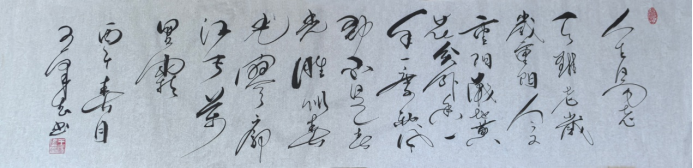 人生易老
天难老岁
岁重阳今又
重阳战地黄
花分外香一
年一度秋风
劲不似春
光胜似春
光寥廓
江天万
里霜
丙午春月
书